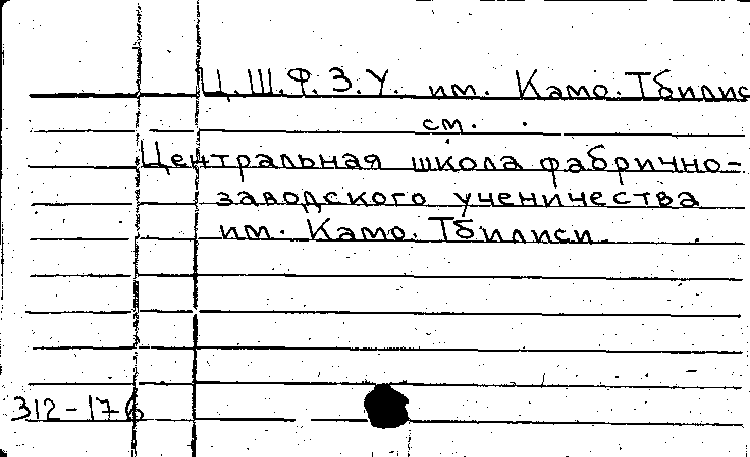 Ц.Ш.Ф.З.У. им. Камо. Тбилис
см.
Центральная школа фабрично-
заводского ученичества
им. Камо. Тбилиси.
312-176